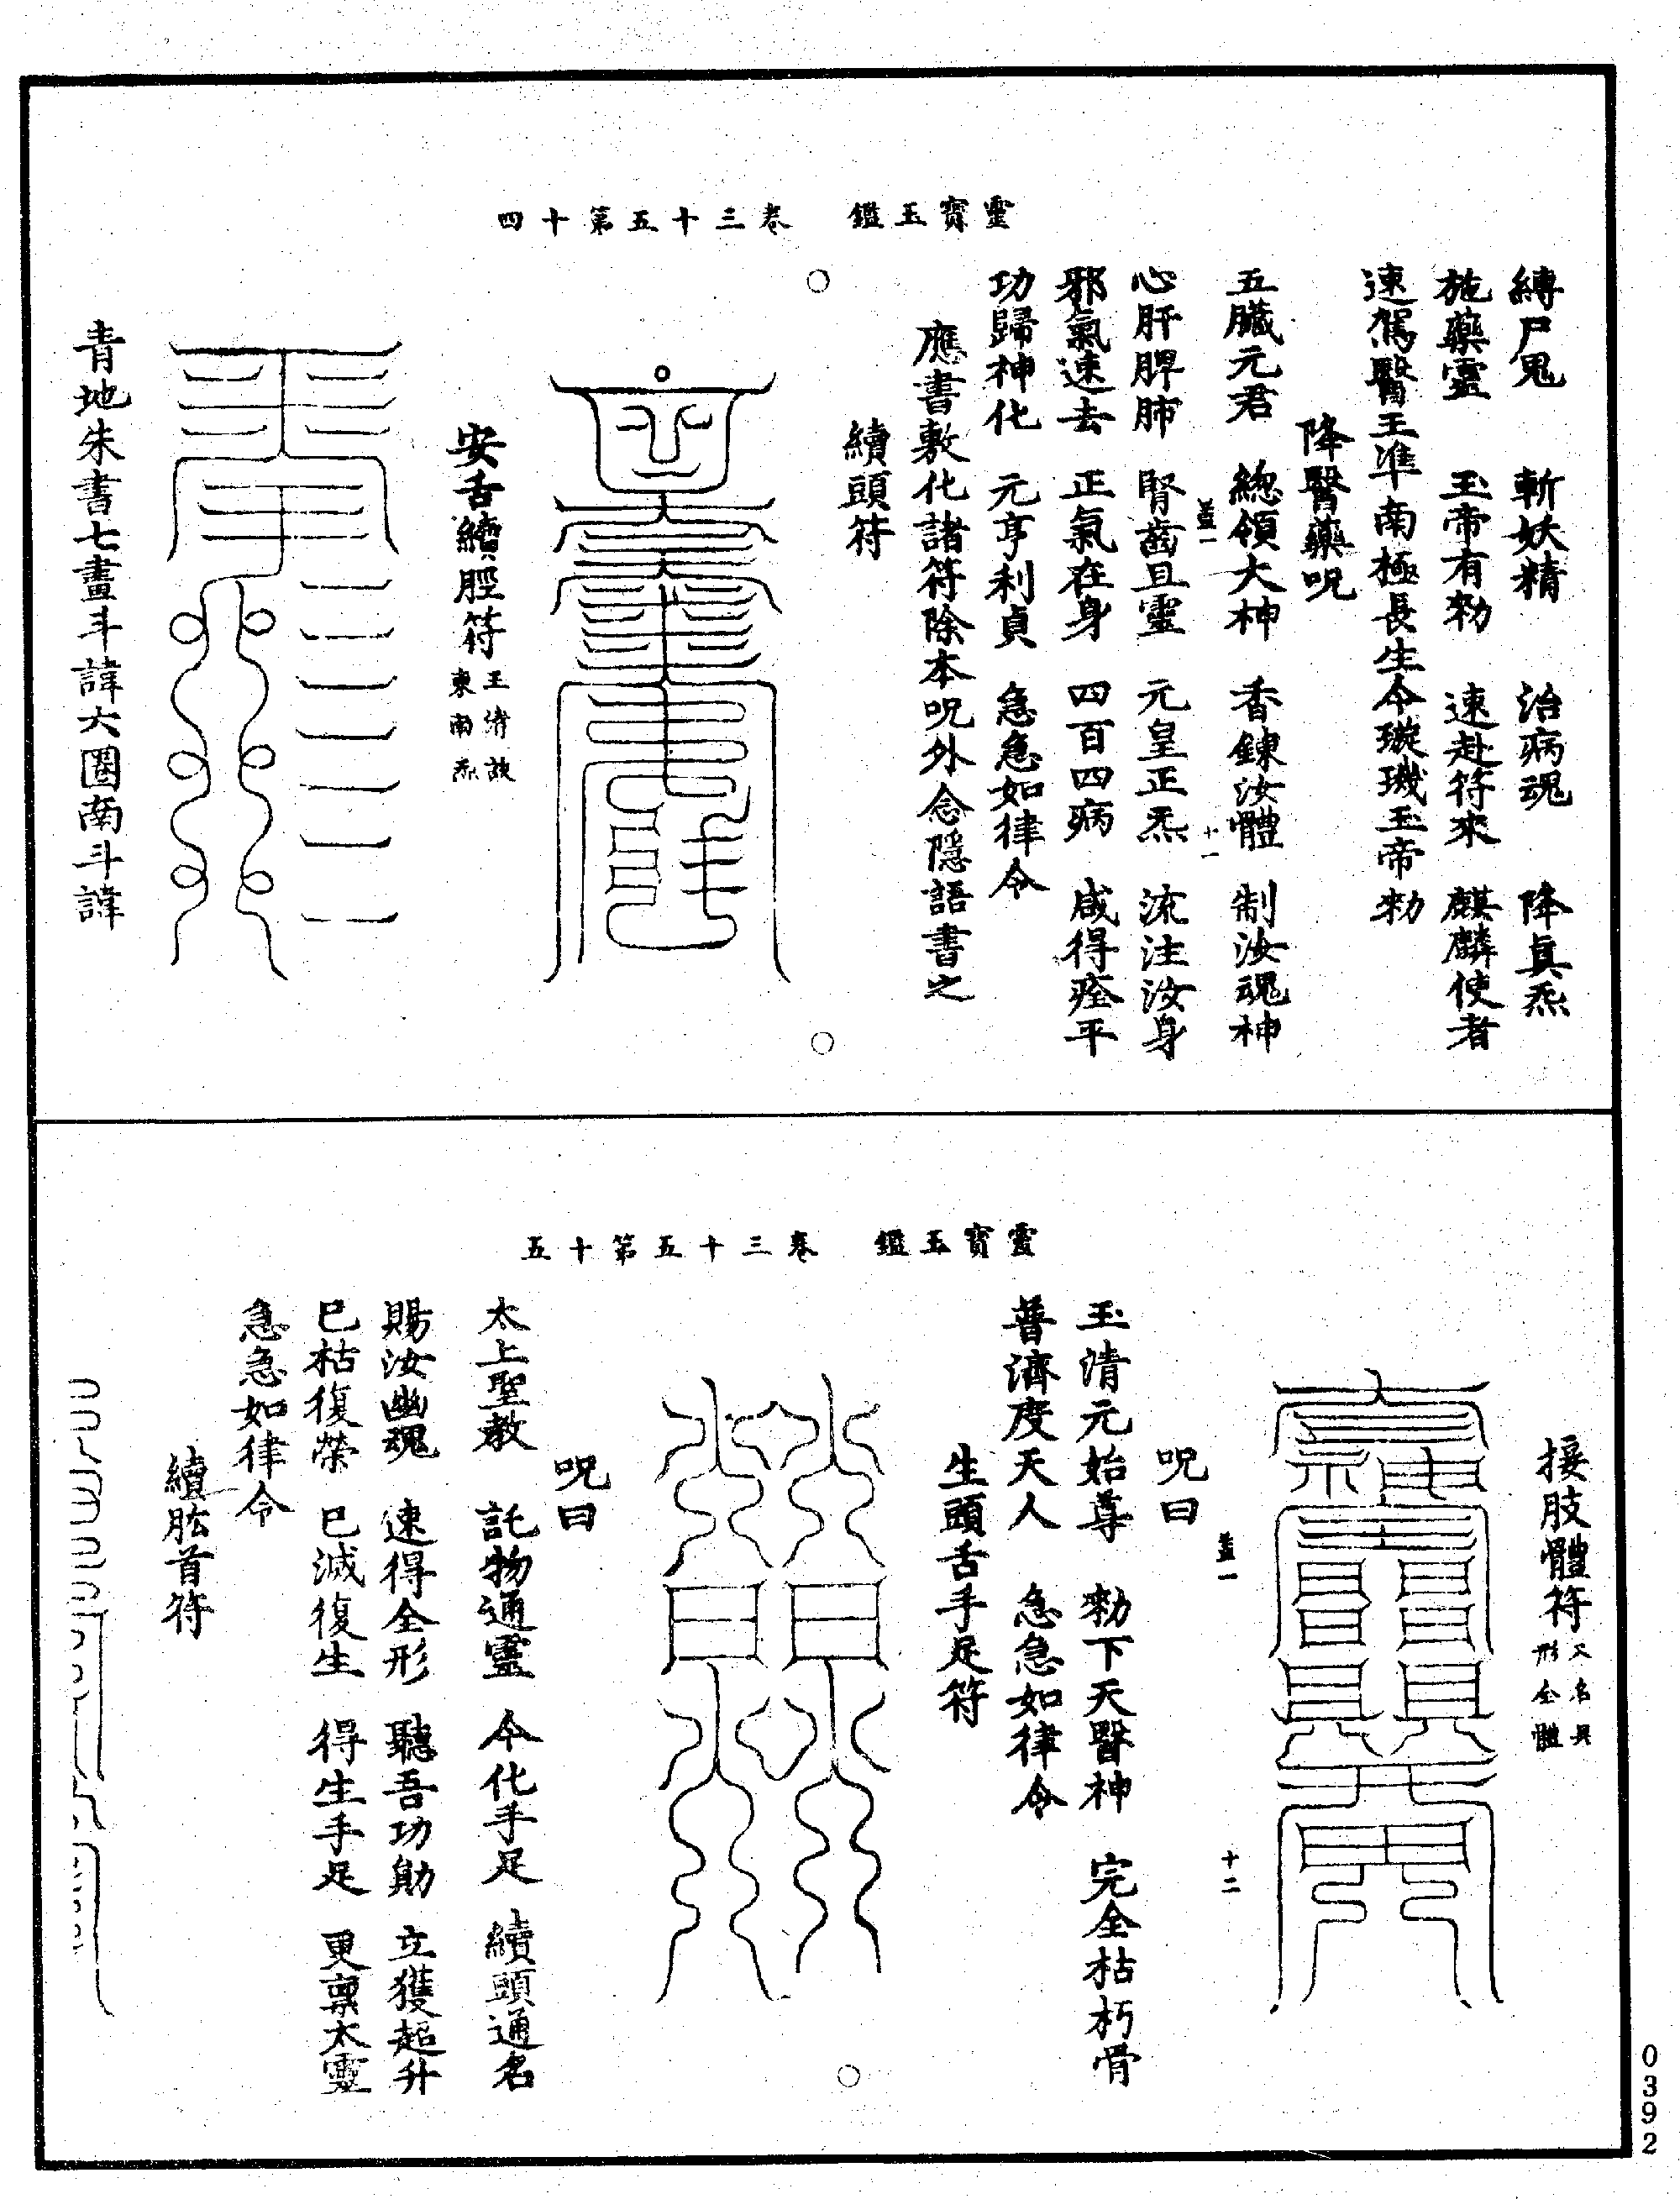 靈寶玉鑑　卷三十五第十四
縛尸鬼　斬妖精　治病魂　降真炁
施藥靈　玉帝有勑　速赴符來　麒麟使者
速駕醫王準南極長生令璇璣玉帝勑
降醫藥呪
五臟元君　總領大神　香鍊汝體　制汝魂神
蓋一　十一
心肝脾肺　腎齒且靈　元皇正炁　流注汝身
邪氣速去　正氣在身　四百四病　咸得痊平
功歸神化　元亨利貞　急急如律令
應書敷化諸符除本呪外念隱語書之
續頭符
安舌續脛符王清訣東南炁
青地朱書七畫斗諱六圈南斗諱
靈寶玉鑑　卷三十五第十五
接肢體符又名具形全體
蓋一　十二
呪曰
玉清元始尊　勑下天醫神　完全枯朽骨
普濟度天人　急急如律令
生頭舌手足符
呪曰
太上聖教　託物通靈　今化手足　續頭通名
賜汝幽魂　速得全形　聽吾功勛　立獲超升
已枯復榮　已滅復生　得生手足　更稟太靈
急急如律令
續肱首符
0392